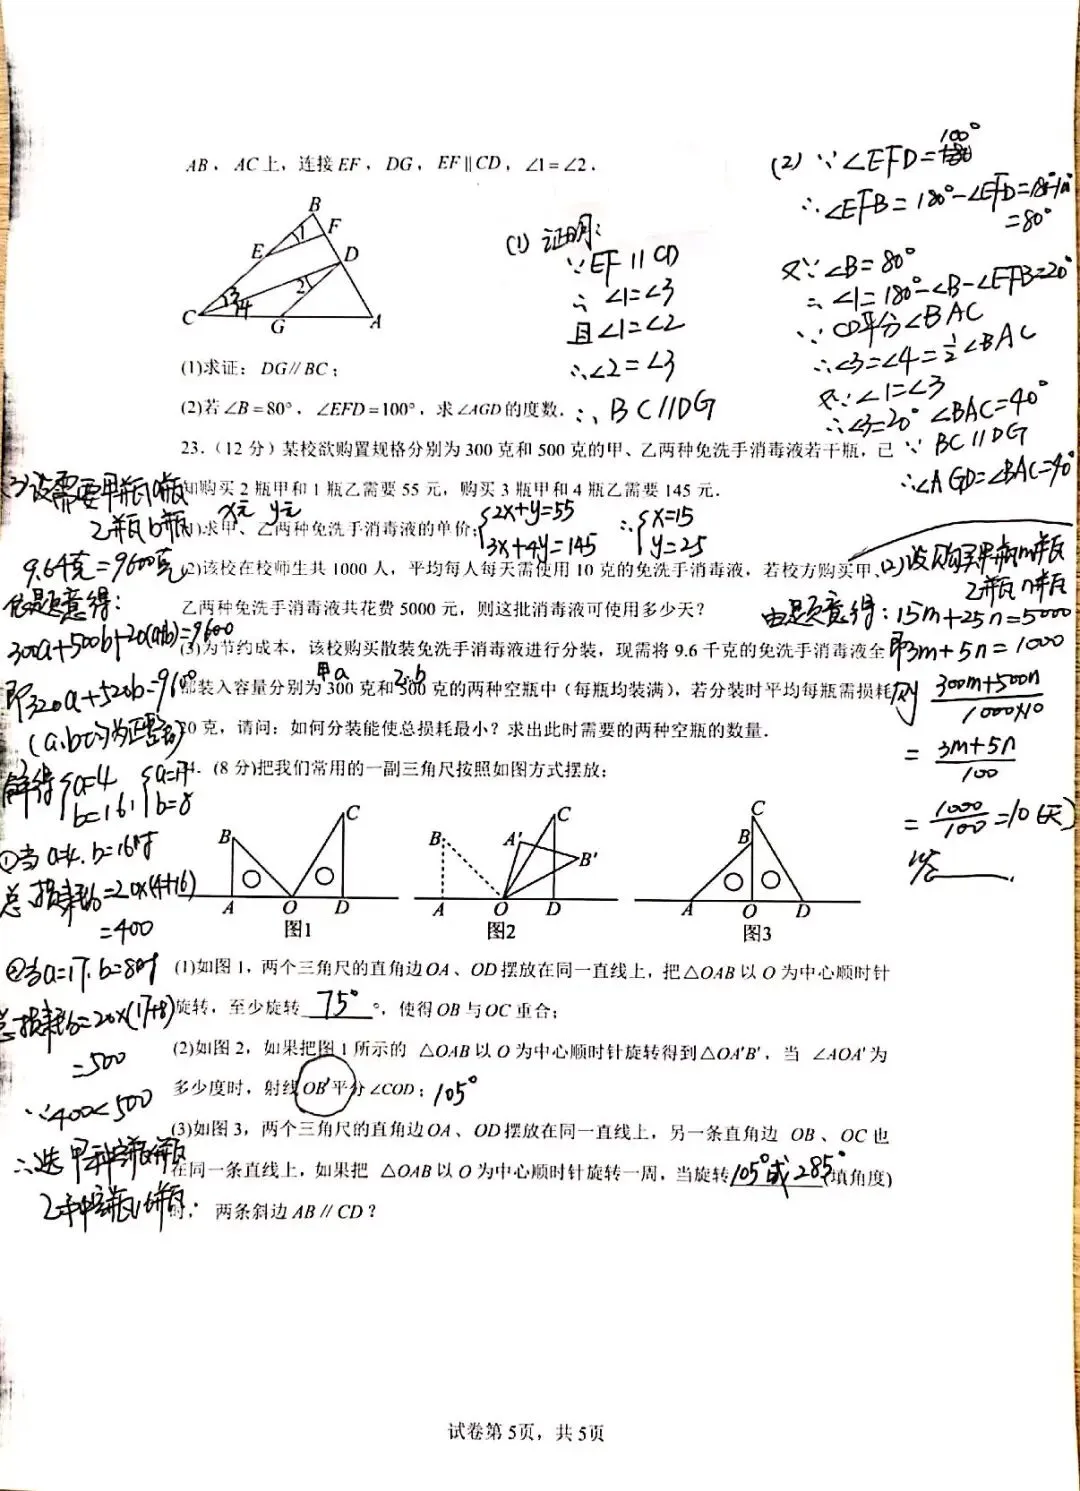 AB，AC上，连接EF，DG，EF∥CD，∠1=∠2．
B
F
E
1
D
2
3
4
C
G
A
(1)求证：DG∥BC；
(2)若∠B=80°，∠EFD=100°，求∠AGD的度数．
(1) 证明：
∵EF∥CD
∴∠1=∠3
且∠1=∠2
∴∠2=∠3
∴BC∥DG
(2) ∵∠EFD=100°
∴∠EFB=180°-∠EFD=180°-100°
=80°
又∵∠B=80°
∴∠1=180°-∠B-∠EFB=20°
∵CD平分∠BAC
∴∠3=∠4=½∠BAC
又∵∠1=∠3
∴∠3=20° ∠BAC=40°
∵BC∥DG
∴∠AGD=∠BAC=40°
23.（12分）某校欲购置规格分别为300克和500克的甲、乙两种免洗手消毒液若干瓶，已
知购买2瓶甲和1瓶乙需要55元，购买3瓶甲和4瓶乙需要145元．
x元 y元
(1)求甲、乙两种免洗手消毒液的单价；
{2x+y=55
3x+4y=145
∴{x=15
y=25
(2)该校在校师生共1000人，平均每人每天需使用10克的免洗手消毒液，若校方购买甲、
乙两种免洗手消毒液共花费5000元，则这批消毒液可使用多少天？
(3)为节约成本，该校购买散装免洗手消毒液进行分装，现需将9.6千克的免洗手消毒液全
甲a 乙b
部装入容量分别为300克和500克的两种空瓶中（每瓶均装满），若分装时平均每瓶需损耗
20克，请问：如何分装能使总损耗最小？求出此时需要的两种空瓶的数量．
(2)设购买甲m瓶
乙n瓶
由题意得：15m+25n=5000
即3m+5n=1000
则 300m+500n/1000×10
= 3m+5n/100
= 1000/100=10(天)
答
(3)设需要甲瓶a瓶
乙瓶b瓶
9.6千克=9600克
由题意得：
300a+500b+20(a+b)=9600
即320a+520b=9600
(a、b均为正整数)
解得{a=4 {a=17
b=16, b=8
①当a=4，b=16时
总损耗为=20×(4+16)
=400
②当a=17，b=8时
总损耗为=20×(17+8)
=500
∵400<500
∴选甲种空瓶4瓶
乙种空瓶16瓶．
24．(8分)把我们常用的一副三角尺按照如图方式摆放：
B
C
A
O
D
图1
B
A′
C
B′
A
O
D
图2
C
B
A
O
D
图3
(1)如图1，两个三角尺的直角边OA、OD摆放在同一直线上，把△OAB以O为中心顺时针
旋转，至少旋转 75° °，使得OB与OC重合；
(2)如图2，如果把图1所示的△OAB以O为中心顺时针旋转得到△OA′B′，当∠AOA′为
多少度时，射线OB′平分∠COD；105°
(3)如图3，两个三角尺的直角边OA、OD摆放在同一直线上，另一条直角边OB、OC也
在同一条直线上，如果把△OAB以O为中心顺时针旋转一周，当旋转105°或285°(填角度)
时，两条斜边AB∥CD？
试卷第5页，共5页